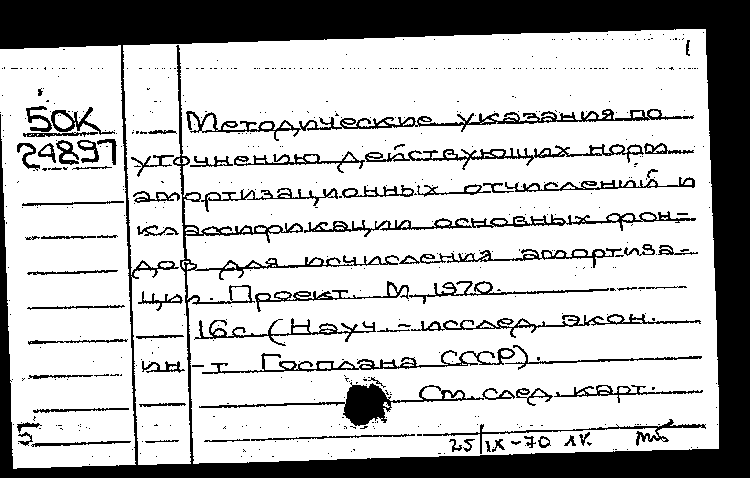 1
50К
24897
Методические указания по
уточнению действующих норм
амортизационных отчислений и
классификации основных фон=
дов для исчисления амортиза-
ции. Проект. М., 1970.
16с. (Науч.-исслед. экон.
ин-т Госплана СССР).
См. след. карт.
5
25/IX-70 1К